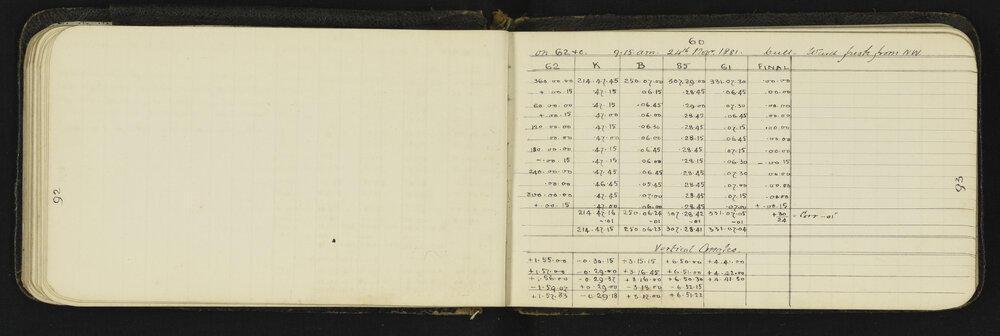 92
60
on 62 &c. 9.15 a.m. 24th Novr. 1881. Wind fresh from NW
62 K B 85 61 FINAL
360.00.00 214.47.45 250.07.00 307.29.00 331.07.30 .00.00
+.00.15 .47.15 .06.15 .28.45 .06.45 .00.00
60.00.00 .47.15 .06.45 .29.00 .07.30 .00.00
+.00.15 .47.00 .06.00 .28.45 .06.45 .00.00
120.00.00 .47.15 .06.30 .28.45 .07.15 .00.00
.00.00 .47.00 .06.00 .28.15 .06.45 .00.00
180.00.00 .47.15 .06.45 .28.45 .07.15 .00.00
-.00.15 .47.15 .06.00 .28.15 .06.30 -.00.15
240.00.00 .47.45 .06.45 .28.45 .07.30 .00.00
.00.00 .46.45 .05.45 .28.45 .07.00 .00.00
300.00.00 .47.45 .07.00 .28.45 .07.30 .00.00
+.00.15 .47.00 .06.00 .28.45 .07.00 +.00.15
214.47.16 250.06.24 307.28.42 331.07.05 +30
-.01 -.01 -.01 -.01 24 = Corr -.01
214.47.15 250.06.23 307.28.41 331.07.04
93
Vertical Angles
+1.55.00 -0.30.15 +3.15.15 +6.50.00 +4.41.00
+1.57.00 -0.29.00 +3.16.45 +6.51.00 +4.42.00
+1.56.00 -0.29.37 +3.16.00 +6.50.30 +4.41.30
-1.59.07 +0.29.00 -3.18.00 -6.52.15
+1.57.33 -0.29.18 +3.17.00 +6.51.22